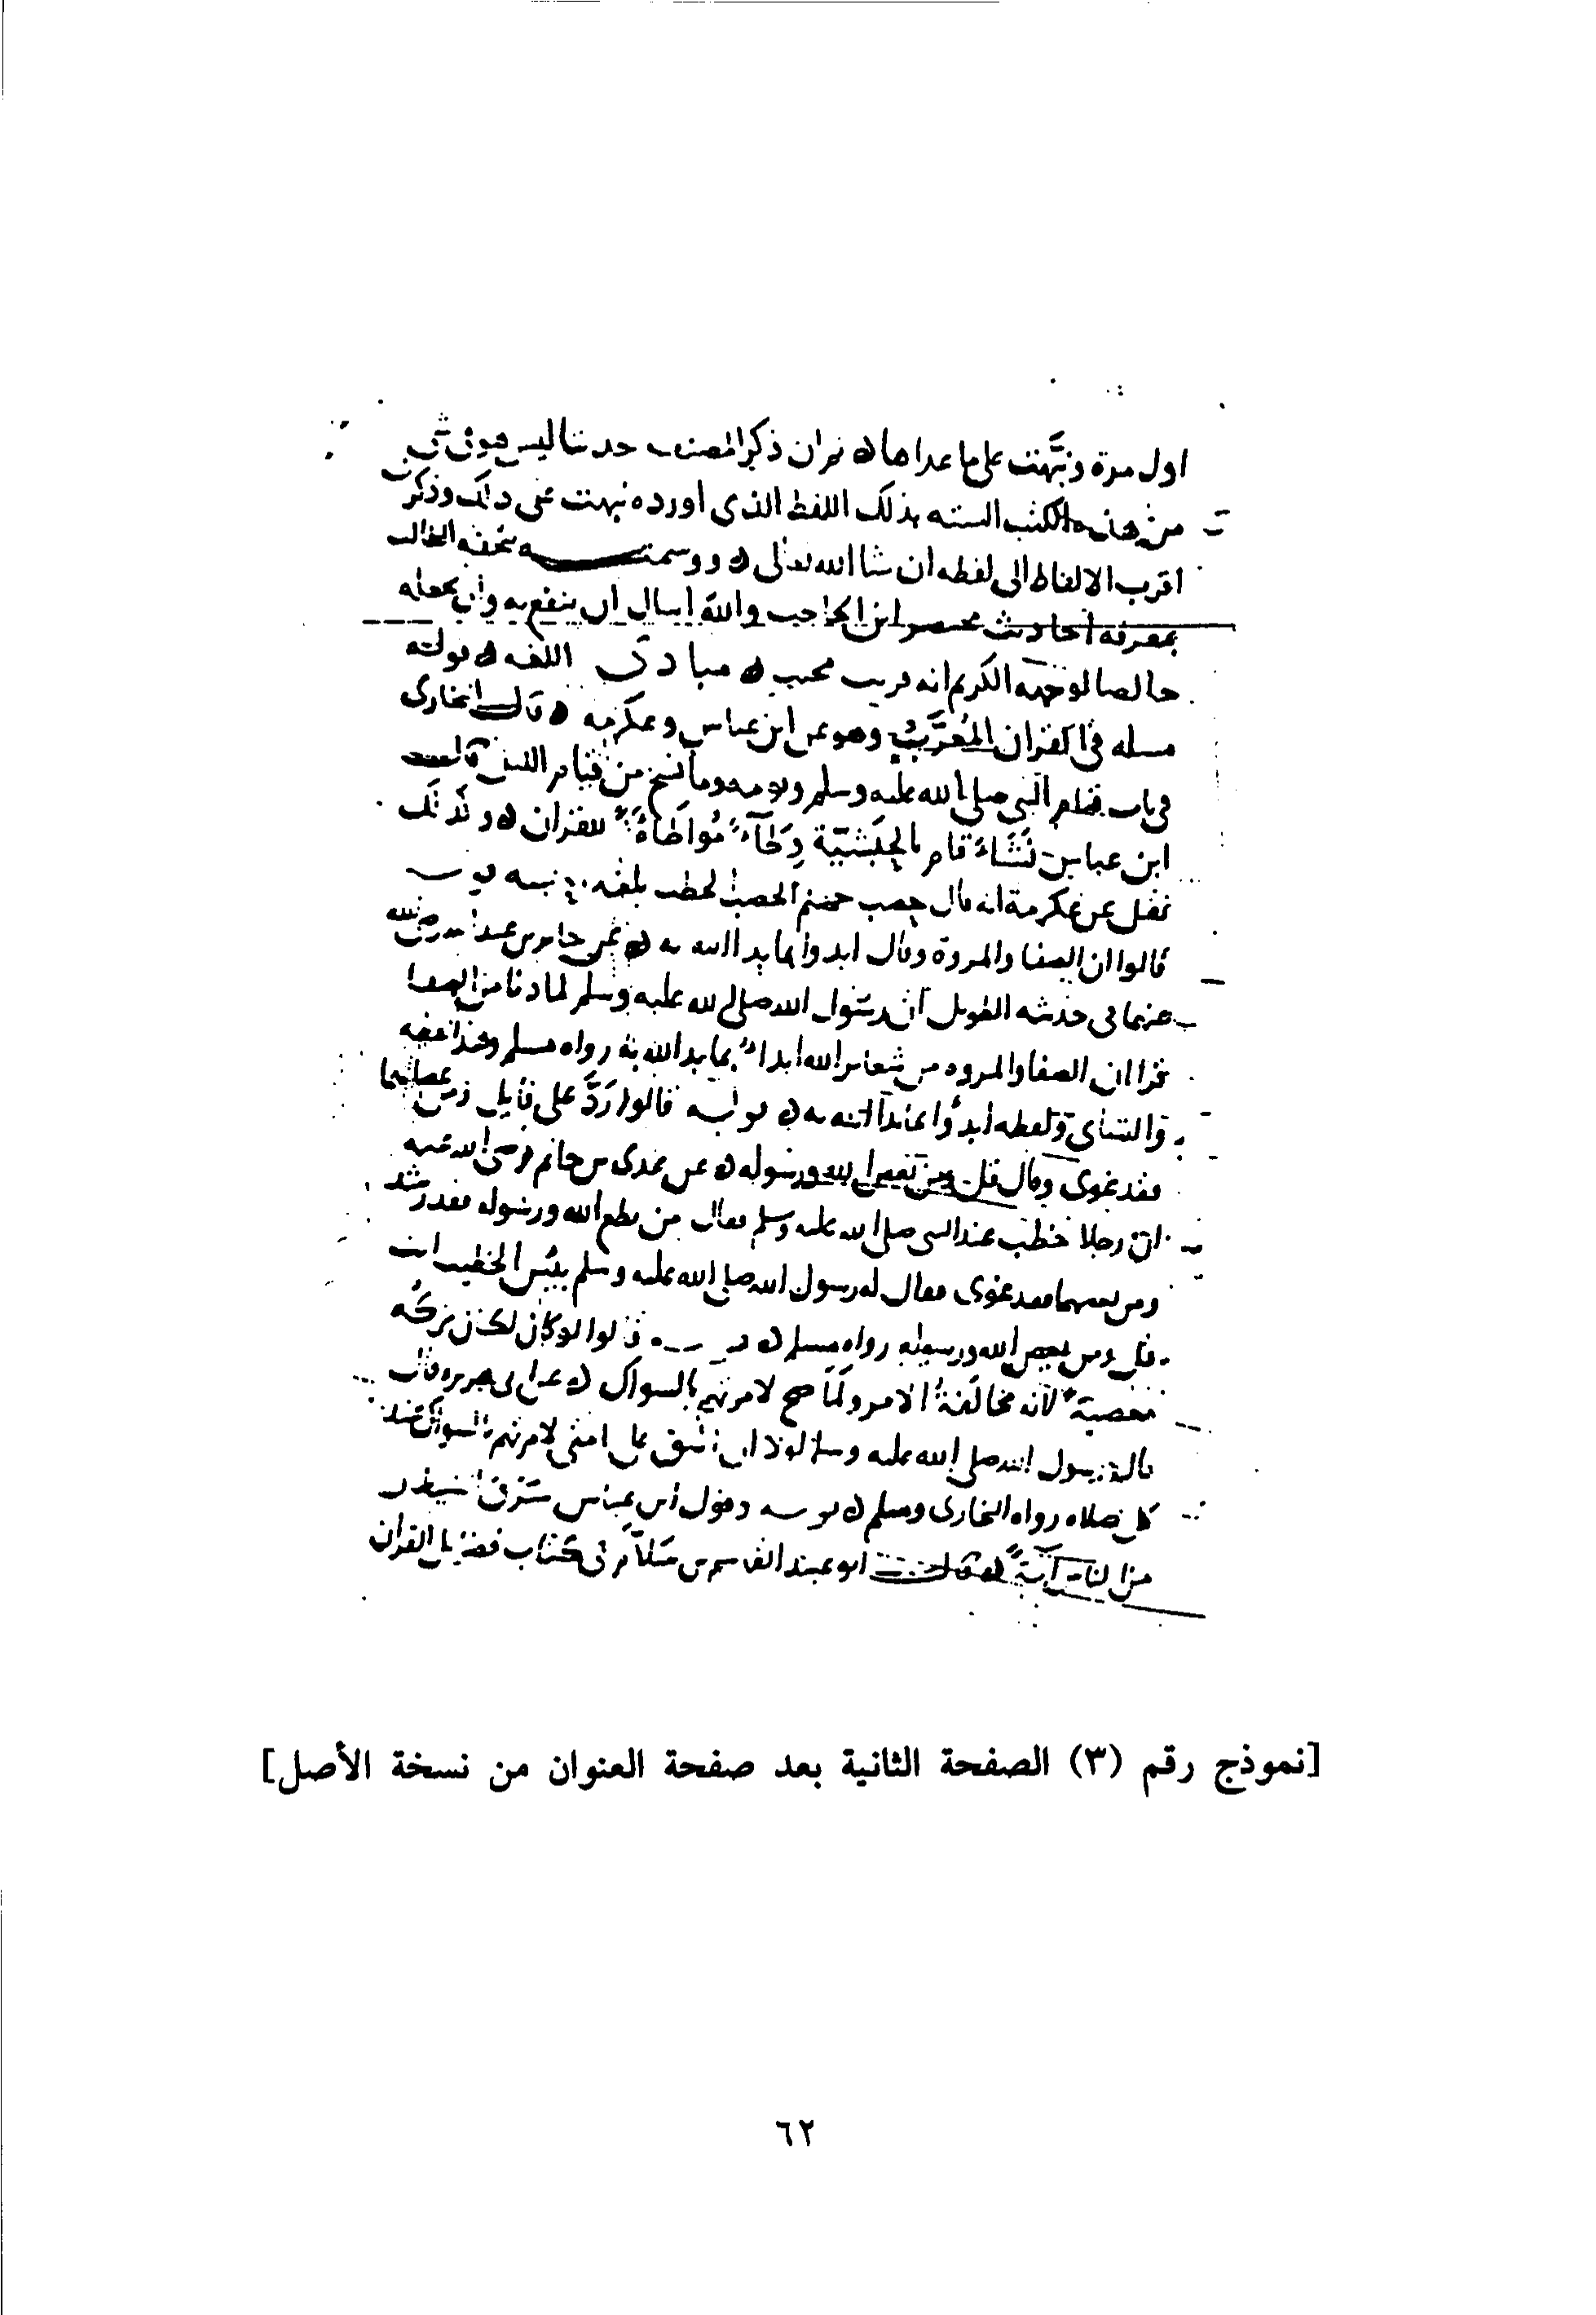 اول مرة ونبَّهت على ما عداها ه ثم ان ذكر المصنف حديثا ليس هو في شي
من هذه الكتب الستة بذلك اللفظ الذي اورده نبهت على ذلك وذكرت
اقرب الالفاظ الى لفظه ان شا الله تعالى ه ووسمته بتحفة الطالب
بمعرفة احاديث مختصر ابن الحاجب والله اسال ان ينفع به وان يجعله
خالصا لوجهه الكريم انه قريب مجيب ه مبادي اللغه ه قوله
مسله في القران المُعَرَّبُ وهو عن ابن عباس وعكرمه ه قال البخاري
في باب قيام النبي صلى الله عليه وسلم ونومه وما نسخ من قيام الليل قال
ابن عباس نَشَاءَ قام بالحَبَشيّة وِطَآءً مُواطَاةً للقران ه وكذلك
نقل عن عكرمة انه قال حصب جهنم الحصب الحطب بلغة قوله
قالوا ان الصفا والمروة وقال ابدوا بما بدا الله به ه عن جابر بن عبد الله رضي الله
عنهما في حديثه الطويل ان رسول الله صلى الله عليه وسلم لما دنا من الصفا
قرا ان الصفا والمروه من شعاير الله ابدا بما بدا الله به رواه مسلم
والنساي ولفظه ابدؤا بما بدا الله به ه قوله قالوا رَدَّ على قايل ومن عصاهما
فقد غوى وقال قل ومن يعص الله ورسوله ه عن عدي بن حاتم رضي الله عنه
ان رجلا خطب عند النبي صلى الله عليه وسلم فقال من يطع الله ورسوله فقد رشد
ومن يعصهما فقد غوى فقال له رسول الله صلى الله عليه وسلم بيس الخطيب انت
قل ومن يعص الله ورسوله رواه مسلم ه قوله قالوا لو كان لكان تركه
معصية لانه مخالفةُ الامر ولمَا صح لامرتهم بالسواك ه عن ابي هريره قال
قال رسول الله صلى الله عليه وسلم لولا ان اشق على امتي لامرتهم بالسواك عند
كل صلاه رواه البخاري ومسلم ه قوله وقول ابن عباس سَرَقَ الشيطان
من الناس آيةً ه قال ابو عبيد القاسم بن سَلاّم في كتاب فضايل القران
[نموذج رقم (٣) الصفحة الثانية بعد صفحة العنوان من نسخة الأصل]
٦٢